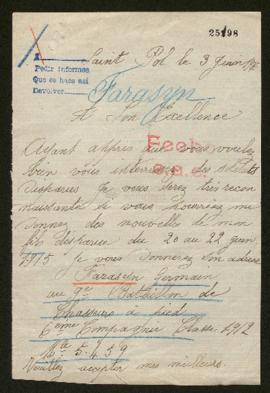 25198
A
Pedir informes
Que se hace así
Devolver
Saint Pol le 3 Juin
Farasyn
A Son Excellence
Ayant appris que vous voulez
bien vous interesser des soldats
disparus Je vous serez très recon
naissante si vous pourriez me
donner des nouvelles de mon
fils disparue du 20 au 22 juin
1915 Je vous donnerez son adresse
Farasyn Germain
au 9e Bataillon de
Chasseurs à pied
6eme Compagnie Classe 1912
Mle 5.459
Veuillez accepter mes meilleurs